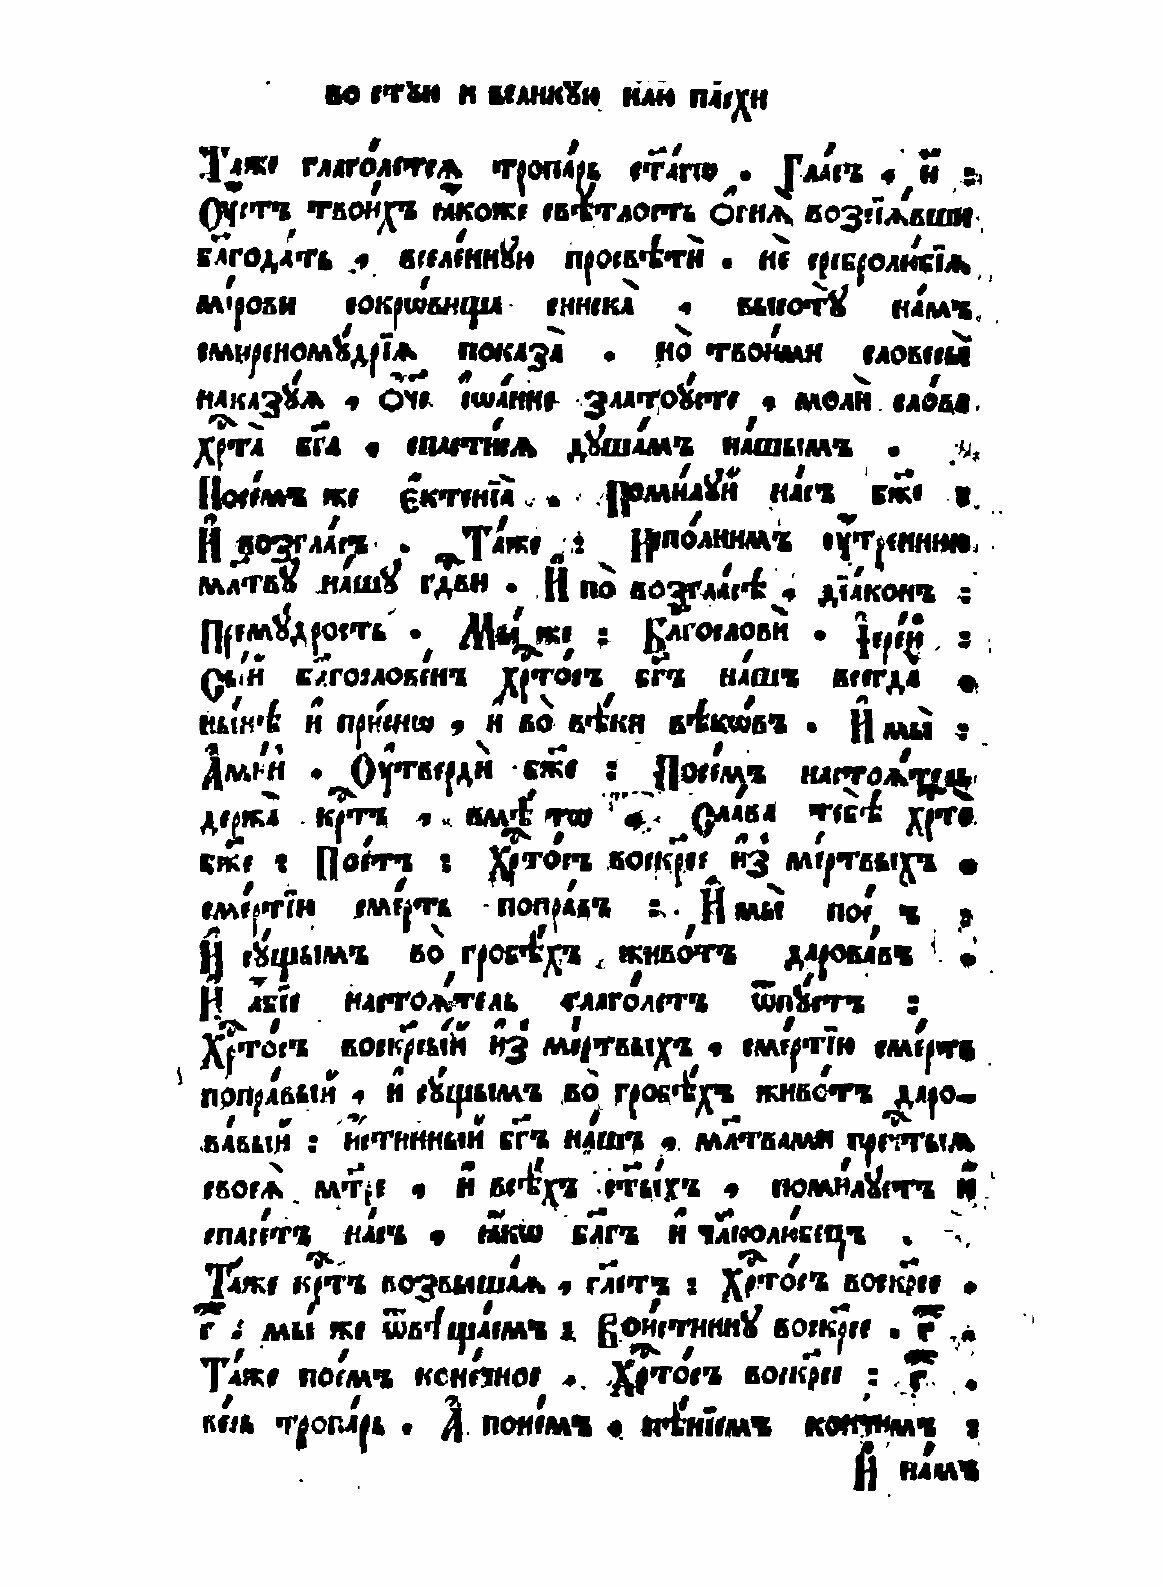 во стꙋ́ю и҆ вели́кꙋю нл҃ю па́схи
Та́же глаго́лется тропа́рь ст҃а́гѡ . Гла́съ , и҃ :
Оу҆́стъ твои́хъ ꙗ҆́коже свѣ́тлость ѻ҆гнѧ̀ возсїѧ́вши
бл҃года́ть , вселе́ннꙋю просвѣтѝ . нѐ сребролю́бїѧ
мі́рови сокрѡ́вища сниска̀ , высотꙋ̀ на́мъ
смиреномꙋ́дрїѧ показа̀ . но̀ твои́ми словесы̀
наказꙋ́ѧ , ѻ҆́ч҃е і҆ѡа́нне златоꙋ́сте , молѝ сло́ва
хрⷭ҇та̀ бг҃а , спасти́сѧ дꙋша́мъ на́шымъ .
Пое́мъ же є҆ктенїа̀ . Поми́лꙋй на́съ бж҃е :
И҆ возгла́съ . Та́же : И҆спо́лнимъ оу҆́треннюю
мл҃твꙋ на́шꙋ гдⷭ҇ви . И҆ по̀ возгла́сѣ , дїа́конъ :
Премꙋ́дрость . Мы́ же : Бл҃гословѝ . І҆ере́й :
Сы́й бл҃гослове́нъ хрⷭ҇то́съ бг҃ъ на́шъ всегда̀
ны́нѣ и҆ при́снѡ , и҆ во̀ вѣ́ки вѣкѡ́въ . И҆ мы̀ :
А҆ми́нь . Оу҆твердѝ бж҃е : Пое́мъ настоѧ́тель
держа̀ крⷭ҇тъ , вмѣ́стѡ Сла́ва тебѣ̀ хрⷭ҇тѐ
бж҃е : Пое́тъ : Хрⷭ҇то́съ воскр҃се и҆з̾ ме́ртвыхъ .
сме́ртїю сме́рть попра́въ : И҆ мы̀ пое́мъ :
И҆ сꙋ́щымъ во̀ гробѣ́хъ , живо́тъ дарова́въ .
И҆ а҆́бїе настоѧ́тель глаго́летъ ѿпꙋ́стъ :
Хрⷭ҇то́съ воскр҃сый и҆з̾ ме́ртвыхъ , сме́ртїю сме́рть
попра́вый , и҆ сꙋ́щымъ во̀ гробѣ́хъ живо́тъ даро-
ва́вый : и҆́стинный бг҃ъ на́шъ , мл҃твами прест҃ы́ѧ
своеѧ̀ мт҃ре , и҆ всѣ́хъ ст҃ы́хъ , поми́лꙋетъ и҆
спасе́тъ на́съ , ꙗ҆́кѡ бл҃гъ и҆ чл҃колю́бецъ .
Та́же крⷭ҇тъ возвыша́ѧ , гл҃етъ : Хрⷭ҇то́съ воскр҃се .
г҃ : мы́ же ѿвѣща́емъ : Вои́стиннꙋ воскр҃се . г҃ .
Та́же пое́мъ коне́чное . Хрⷭ҇то́съ воскр҃се : г҃ .
ве́сь тропа́рь . А҆ поне́мъ . пѣ́нїемъ ко́нчимъ :
И҆ на́мъ